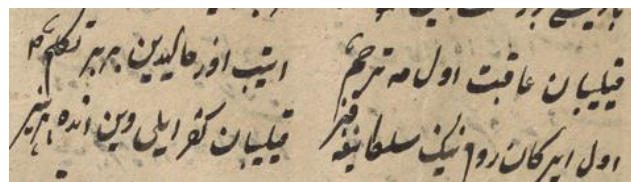 قیلیبان عاقبت اول مه ترحم ایتیب اوز حالیدین بر بر تکلم
اول ایرکان روم نینک سلطانیغه قیز قیلیبان کفر ایلی دین انده پرهیز